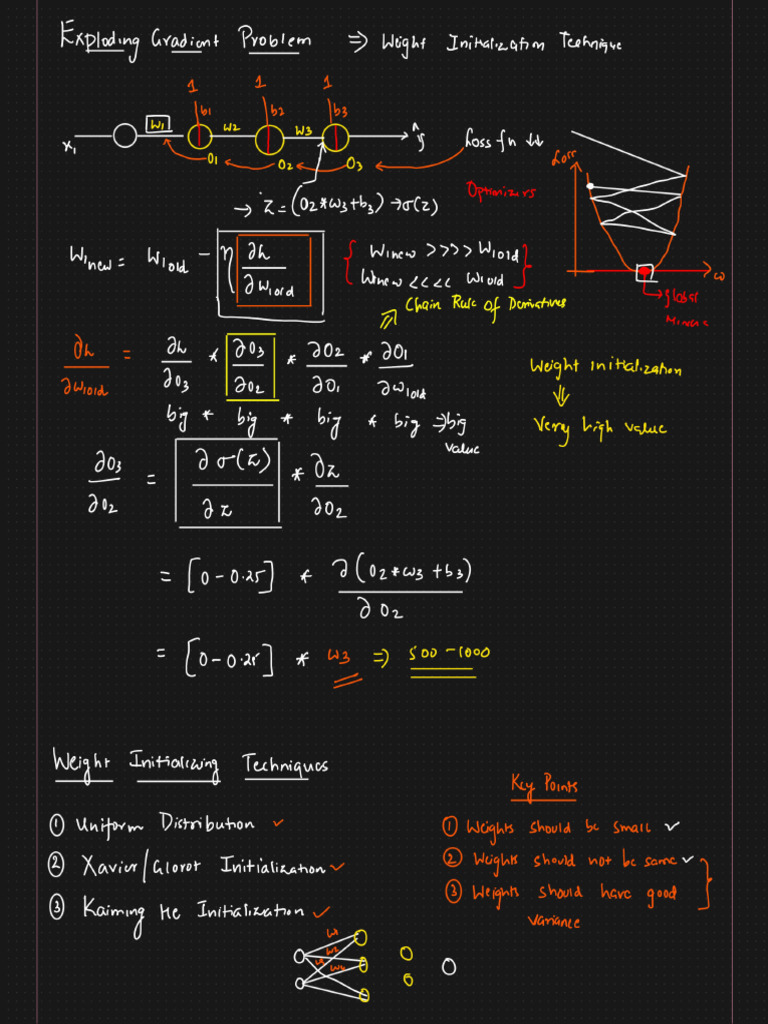 Exploding Gradient Problem ⇒ Weight Initialization Technique
1 1 1
b1 b2 b3
x₁ W1 W2 W3 ŷ
O1 O2 O3
Loss fn ↓↓
Loss
Optimizers
ω
global
→ Z = (O2*W3+b3) → σ(z)
W1new = W1old − η ∂L/∂W1old
{ W1new >>>> W1old
W1new <<<< W1old }
Chain Rule Of Derivatives
∂L/∂W1old = ∂L/∂O3 * ∂O3/∂O2 * ∂O2/∂O1 * ∂O1/∂W1old
big * big * big * big ⇒ big
value
Weight initialization
⇓
Very high value
∂O3/∂O2 = ∂σ(z)/∂z * ∂z/∂O2
= [0 − 0.25] * ∂(O2*W3+b3)/∂O2
= [0 − 0.25] * W3 ⇒ 500 − 1000
Weight Initializing Techniques
① Uniform Distribution ✓
② Xavier/Glorot Initialization ✓
③ Kaiming He Initialization ✓
Key Points
① Weights should be small ✓
② Weights should not be same ✓
③ Weights should have good
variance
W1
W2
W4